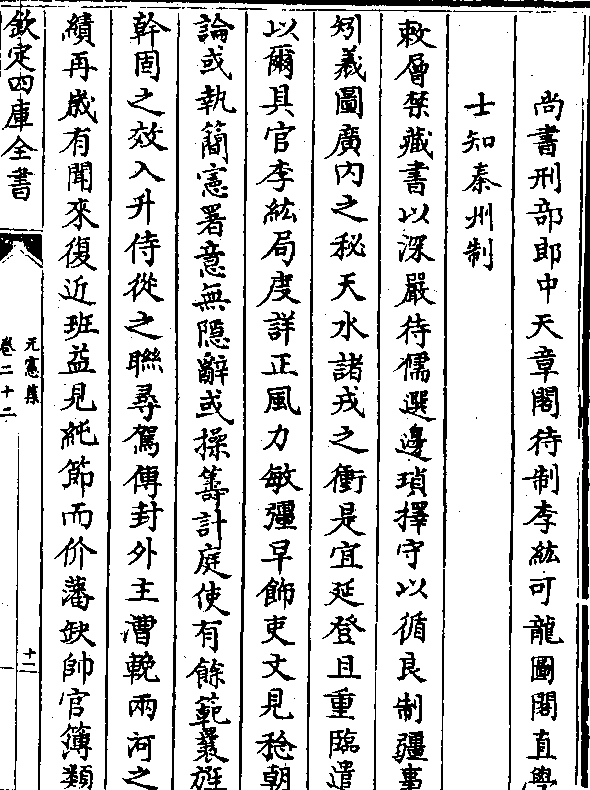 尚書刑部郎中天章閣待制李紘可龍圖閣直學
士知秦州制
敕層禁藏書以深嚴待儒選邊瑣擇守以循良制疆事
矧羲圖廣内之秘天水諸戎之衝是宜延登且重臨遣
以爾具官李紘局度詳正風力敏彊早飾吏文見稔朝
論或執簡憲署意無隱辭或操籌計庭使有餘範曩旌
幹固之效入升侍從之聯尋駕傳封外主漕輓兩河之
績再歲有聞來復近班益見純節而价藩缺帥官簿類
欽定四庫全書
元憲集
卷二十二
十二